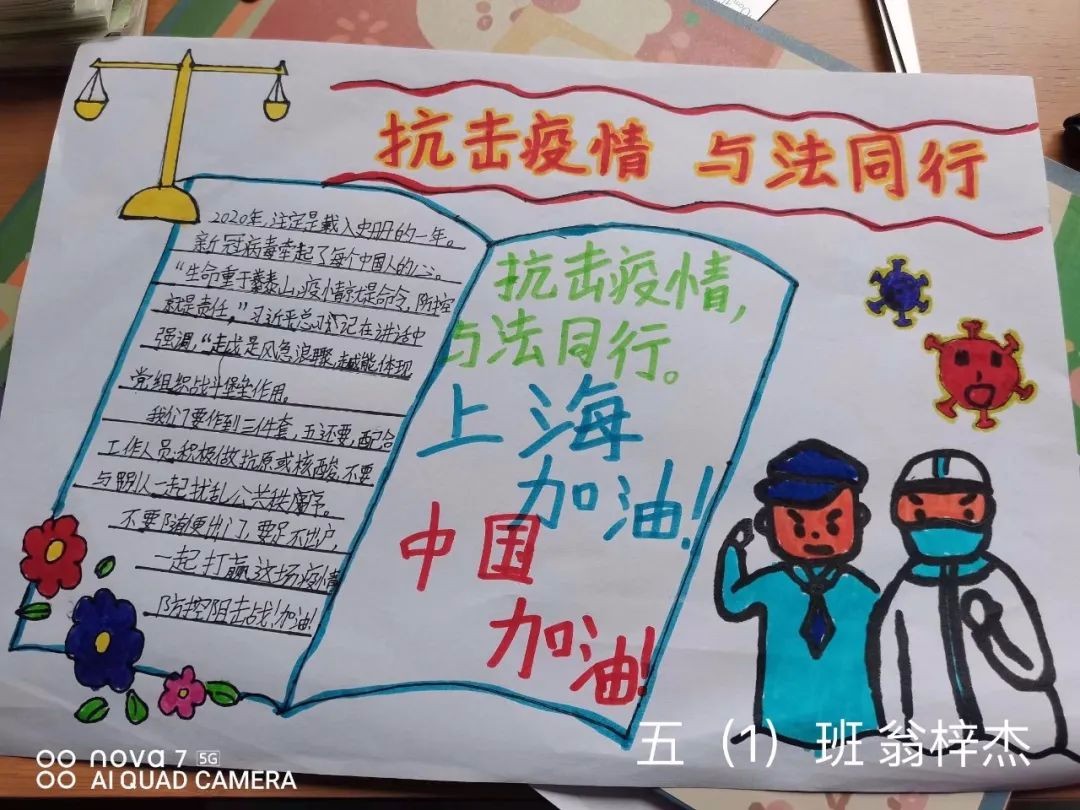 抗击疫情 与法同行
2020年，注定是载入史册的一年。
新冠病毒牵起了每个中国人的心。
“生命重于泰山，疫情就是命令，防控
就是责任。”习近平总书记在讲话中
强调，“越是风急浪骤，越能体现
党组织战斗堡垒作用。
我们要作到三件套，五还要，配合
工作人员积极做抗原或核酸，不要
与别人一起扰乱公共秩序。
不要随便出门，要足不出户，
一起打赢这场疫情
防控阻击战！加油！
抗击疫情，
与法同行。
上海
加油！
中国
加油！
五（1）班 翁梓杰
nova 7 5G
AI QUAD CAMERA